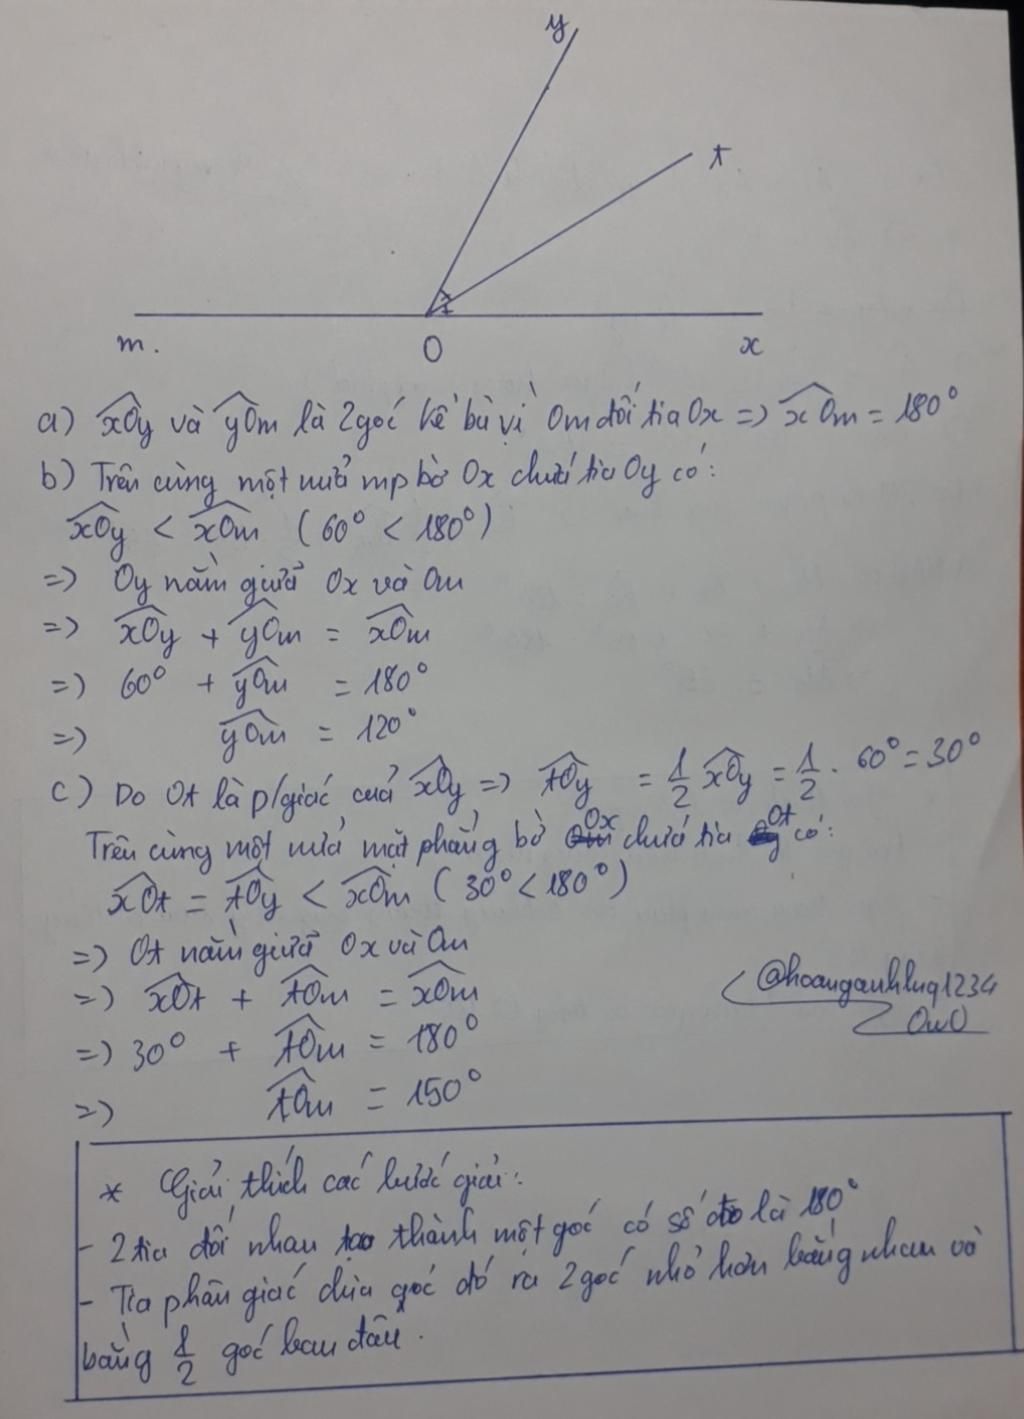 y
t
m.
O
x
a) xOy và yOm là 2 góc kề bù vì Om đối tia Ox => xOm = 180°
b) Trên cùng một nửa mp bờ Ox chứa tia Oy có:
xOy < xOm (60° < 180°)
=> Oy nằm giữa Ox và Om
=> xOy + yOm = xOm
=> 60° + yOm = 180°
=> yOm = 120°
c) Do Ot là p/giác của xOy => tOy = 1/2 xOy = 1/2 . 60° = 30°
Trên cùng một nửa mặt phẳng bờ Ox chứa tia Ot có:
xOt = tOy < xOm (30° < 180°)
=> Ot nằm giữa Ox và Om
=> xOt + tOm = xOm
=> 30° + tOm = 180°
=> tOm = 150°
@hoanganhlhq1234
OwO
* Giải thích các bước giải:
- 2 tia đối nhau tạo thành một góc có số đo là 180°
- Tia phân giác chia góc đó ra 2 góc nhỏ hơn bằng nhau và
bằng 1/2 góc ban đầu.